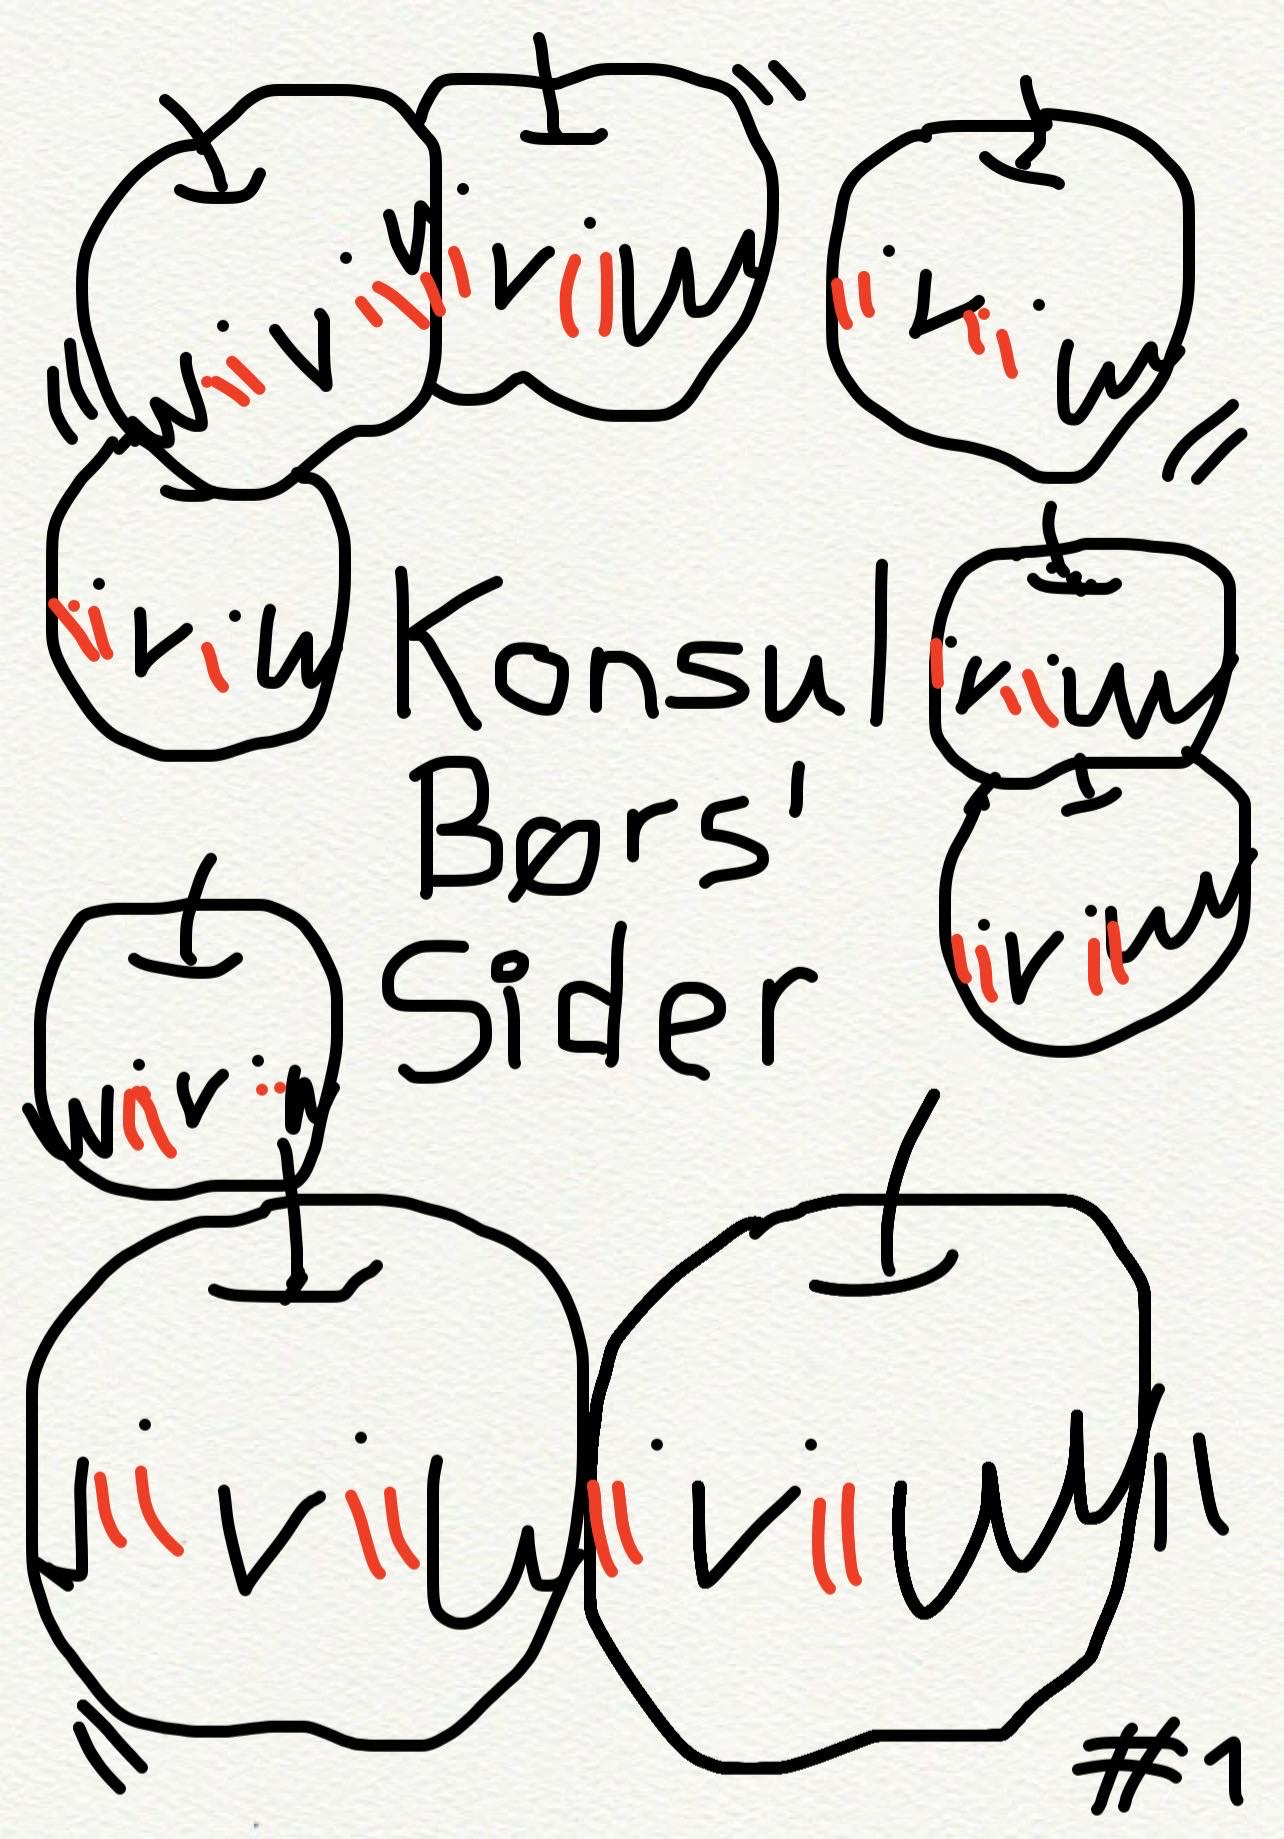 Konsul
Børs'
Sider
#1